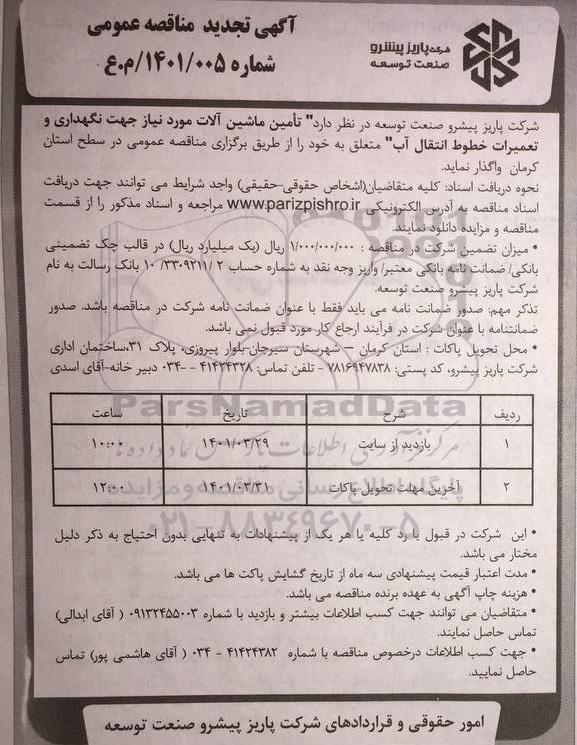 آگهی تجدید مناقصه عمومی
شماره ۱۴۰۱/۰۰۵/م.ع
شرکت پاریز پیشرو
صنعت توسعه
شرکت پاریز پیشرو صنعت توسعه در نظر دارد" تأمین ماشین آلات مورد نیاز جهت نگهداری و
تعمیرات خطوط انتقال آب" متعلق به خود را از طریق برگزاری مناقصه عمومی در سطح استان
کرمان واگذار نماید.
نحوه دریافت اسناد: کلیه متقاضیان(اشخاص حقوقی-حقیقی) واجد شرایط می توانند جهت دریافت
اسناد مناقصه به آدرس الکترونیکی www.parizpishro.ir مراجعه و اسناد مذکور را از قسمت
مناقصه و مزایده دانلود نمایند.
• میزان تضمین شرکت در مناقصه : ۱/۰۰۰/۰۰۰/۰۰۰ ریال (یک میلیارد ریال) در قالب چک تضمینی
بانکی/ ضمانت نامه بانکی معتبر/ واریز وجه نقد به شماره حساب ۲ /۳۳۰۹۲۱۱/ ۱۰ بانک رسالت به نام
شرکت پاریز پیشرو صنعت توسعه.
تذکر مهم: صدور ضمانت نامه می باید فقط با عنوان ضمانت نامه شرکت در مناقصه باشد. صدور
ضمانتنامه با عنوان شرکت در فرآیند ارجاع کار مورد قبول نمی باشد.
• محل تحویل پاکات : استان کرمان – شهرستان سیرجان-بلوار پیروزی، پلاک ۳۱،ساختمان اداری
شرکت پاریز پیشرو، کد پستی: ۷۸۱۶۹۴۷۸۳۸ - تلفن تماس: ۴۱۴۲۴۳۲۸ - ۰۳۴ دبیر خانه-آقای اسدی
ردیف شرح تاریخ ساعت
۱ بازدید از سایت ۱۴۰۱/۰۳/۲۹ ۱۰:۰۰
۲ آخرین مهلت تحویل پاکات ۱۴۰۱/۰۳/۳۱ ۱۲:۰۰
ParsNamadData
پایگاه اطلاع رسانی مناقصه و مزایده
۰۲۱-۸۸۳۴۹۶۷۰-۵
• این شرکت در قبول یا رد کلیه یا هر یک از پیشنهادات به تنهایی بدون احتیاج به ذکر دلیل
مختار می باشد.
• مدت اعتبار قیمت پیشنهادی سه ماه از تاریخ گشایش پاکت ها می باشد.
• هزینه چاپ آگهی به عهده برنده مناقصه می باشد.
• متقاضیان می توانند جهت کسب اطلاعات بیشتر و بازدید با شماره ۰۹۱۳۲۴۵۵۰۰۳ ( آقای ابدالی)
تماس حاصل نمایند.
• جهت کسب اطلاعات درخصوص مناقصه با شماره ۴۱۴۲۴۳۸۲ - ۰۳۴ ( آقای هاشمی پور) تماس
حاصل نمایید.
امور حقوقی و قراردادهای شرکت پاریز پیشرو صنعت توسعه